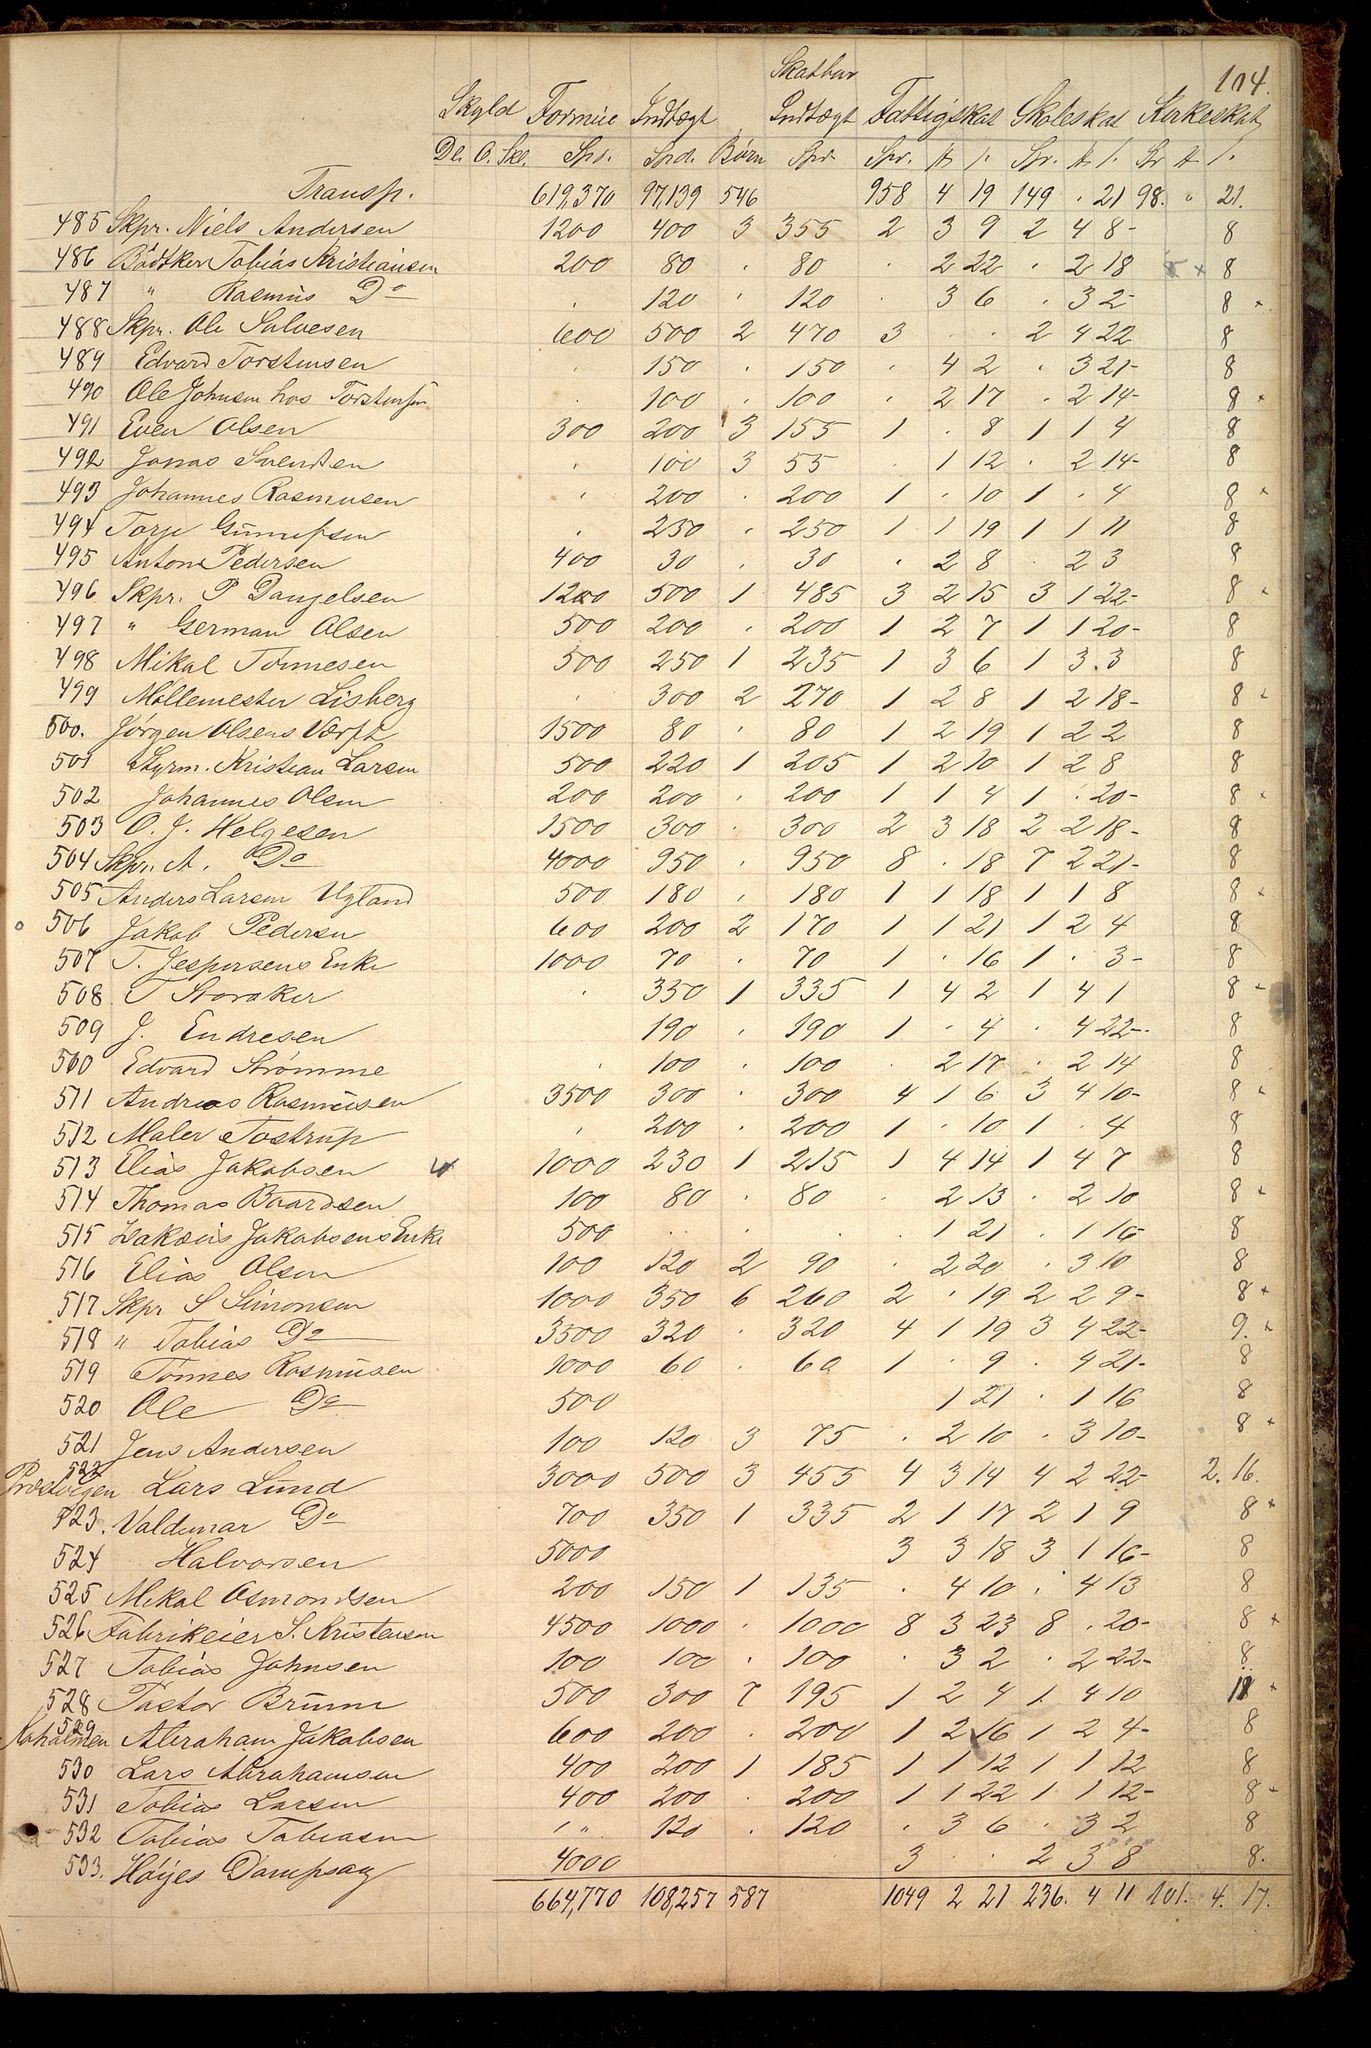 104.
Skatbar
Skyld Formue Indtægt Indtægt Fattigskat Skoleskat Kirkeskat
Dl. O. Skl. Spd. Spd. Børn Spd. Spd. # /. Spd. # /. Sp # /.
Transp. 619,370 97,139 546 958 4 19 149 . 21 98. " 21.
485 Skpr. Niels Andersen 1200 400 3 355 2 3 9 2 4 8- 8
486 Bødtker Tobias Kristiansen 200 80 . 80 . 2 22 . 2 18 8
487 " Rasmus Do . 120 . 120 . 3 6 . 3 2- 8
488 Skpr. Ole Salvesen 600 500 2 470 3 . . 2 4 22 8
489 Edvard Torstensen . 150 . 150 . 4 2 . 3 21- 8
490 Ole Johnsen hos Torstensen . 100 . 100 . 2 17 . 2 14- 8
491 Even Olsen 300 200 3 155 1 . 8 1 1 4 8
492 Jonas Svendsen . 100 3 55 . 1 12 . 2 14- 8
493 Johannes Rasmusen . 200 . 200 1 . 10 1 . 4 8
494 Torje Gunnufsen . 250 . 250 1 1 19 1 1 11 8
495 Anton Pedersen 400 30 . 30 . 2 8 . 2 3 8
496 Skpr. P Danjelsen 1200 500 1 485 3 2 15 3 1 22- 8
497 " German Olsen 500 200 . 200 1 2 7 1 1 20- 8
498 Mikal Tønnesen 500 250 1 235 1 3 6 1 3.3 8
499 Møllemester Lisberg . 300 2 270 1 2 8 1 2 18- 8
500. Jørgen Olsens Værft 1500 80 . 80 1 2 19 1 2 2 8
501 Styrm. Kristian Larsen 500 220 1 205 1 2 10 1 2 8 8
502 Johannes Olsen 200 200 . 200 1 1 4 1 . 20- 8
503 O. J. Helgesen 1500 300 . 300 2 3 18 2 2 18- 8
504 Skpr. A. Do 4000 950 . 950 8 . 18 7 2 21- 8
505 Anders Larsen Ugland 500 180 . 180 1 1 18 1 1 8 8
506 Jakob Pedersen 600 200 2 170 1 1 21 1 2 4 8
507 T. Jespersens Enke 1000 70 . 70 1 . 16 1 . 3- 8
508 T Storaker . 350 1 335 1 4 2 1 4 1 8
509 J. Endresen 190 . 190 1 . 4 . 4 22- 8
510 Edvard Strømme . 100 . 100 . 2 17 . 2 14 8
511 Andreas Rasmusen 3500 300 . 300 4 1 6 3 4 10- 8
512 Maler Tostrup . 200 . 200 1 . 10 1 . 4 8
513 Elias Jakobsen 1000 230 1 215 1 4 14 1 4 7 8
514 Thomas Baardsen 100 80 . 80 . 2 13 . 2 10 8
515 Zakæus Jakobsens Enke 500 . . . . 1 21 . 1 16- 8
516 Elias Olsen 100 120 2 90 . 2 20 . 3 10 8
517 Skpr S Simonsen 1000 350 6 260 2 . 19 2 2 9- 8
518 " Tobias Do 3500 320 . 320 4 1 19 3 4 22- 9.
519 Tønnes Rasmusen 1000 60 . 60 1 . 9 . 4 21- 8
520 Ole Do 500 1 21 . 1 16 8
521 Jens Andersen 100 120 3 75 . 2 10 . 3 10- 8
522
Præstvigen Lars Lund 3000 500 3 455 4 3 14 4 2 22- 2. 16.
523. Valdemar Do 700 350 1 335 2 1 17 2 1 9 8
524 Halvorsen 5000 3 3 18 3 1 16- 8
525 Mikal Osmondsen 200 150 1 135 . 4 10 . 4 13 8
526 Fabrikeier S. Kristensen 4500 1000 . 1000 8 3 23 8 . 20- 8
527 Tobias Johnsen 100 100 . 100 . 3 2 . 2 22- 8
528 Pastor Bruun 500 300 7 195 1 2 4 1. 4 10
529
Abraham Jakobsen 600 200 . 200 1 2 16 1 2 4- 8
530 Lars Abrahamsen 400 200 1 185 1 1 12 1 1 12 8
531 Tobias Larsen 400 200 . 200 1 1 22 1 1 12- 8
532 Tobias Tobiasen " 120 . 120 . 3 6 . 3 2 8
533. Høyes Dampsag 4000 3 . . 2 3 8 8.
664,770 108,257 587 1049 2 21 236. 4 11 101. 4. 17.